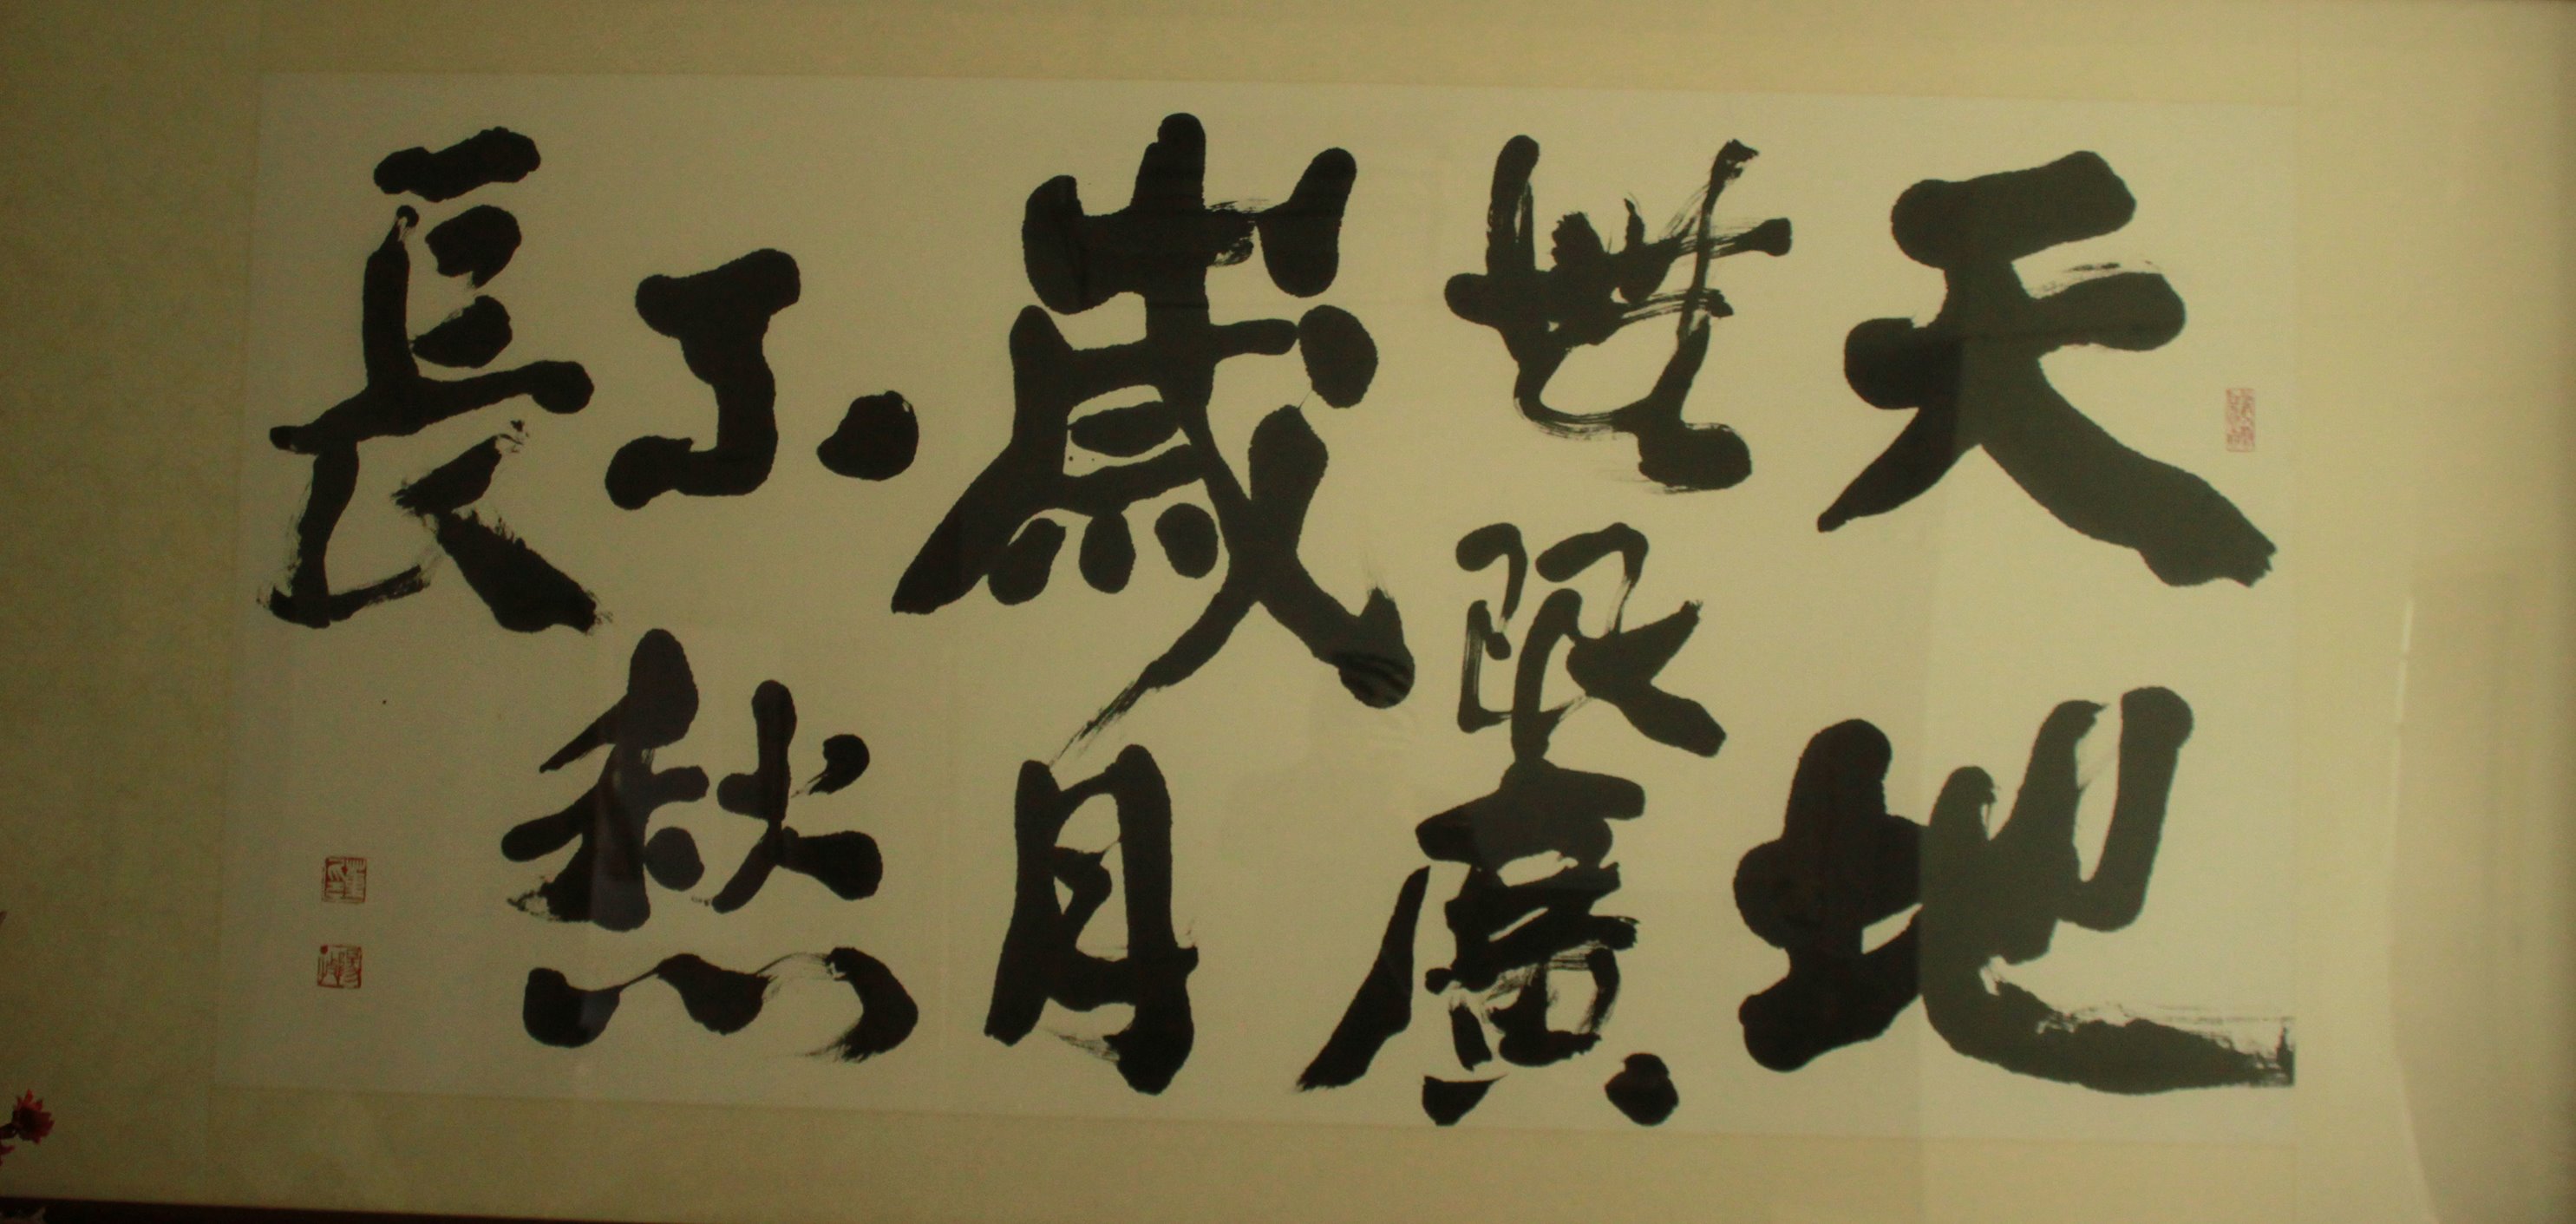 天地
無限廣
歲月
不愁
長